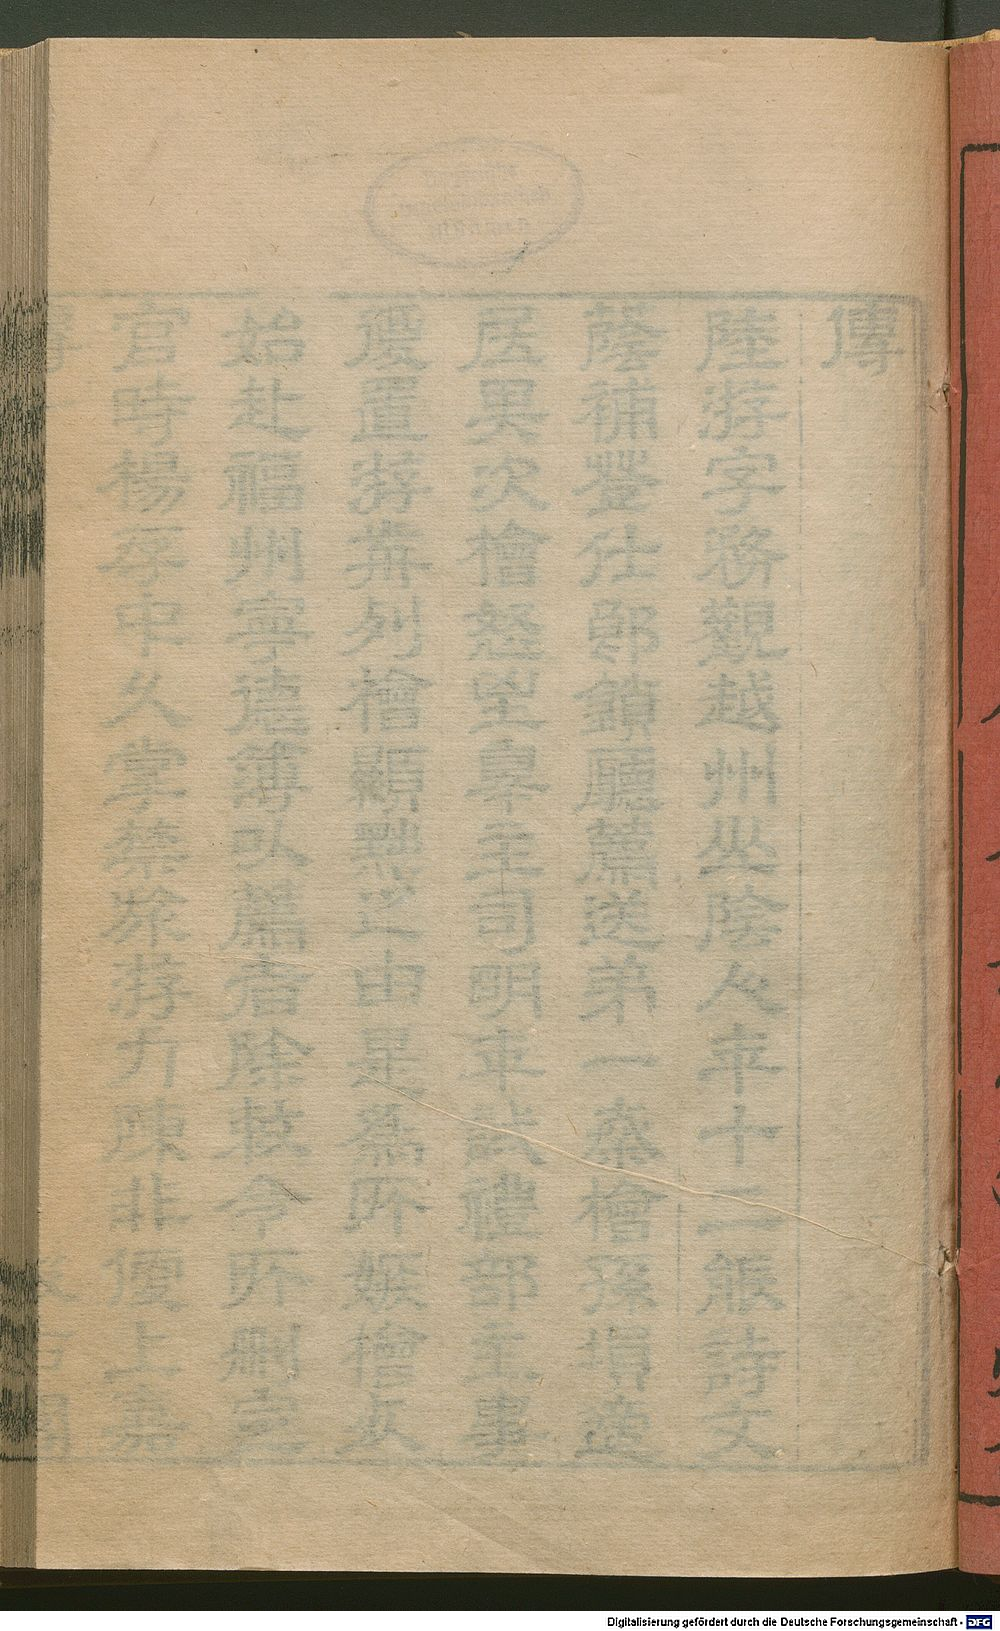 傳
陸游字務觀越州山陰人年十二能詩文
蔭補登仕郎鎖廳薦送第一秦檜孫塤適
居其次檜怒至辠主司明年試禮部主
復置游前列檜顯黜之由是為所嫉檜死
始赴福州寧德簿以薦者除敕令所刪定
官時楊存中久掌禁旅游力陳非便上嘉
汲古閣
Digitalisierung gefördert durch die Deutsche Forschungsgemeinschaft - DFG